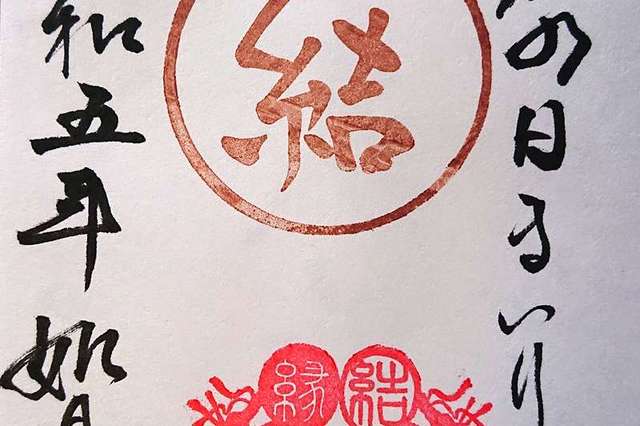 朔日まいり
結
縁結
和五年 如月